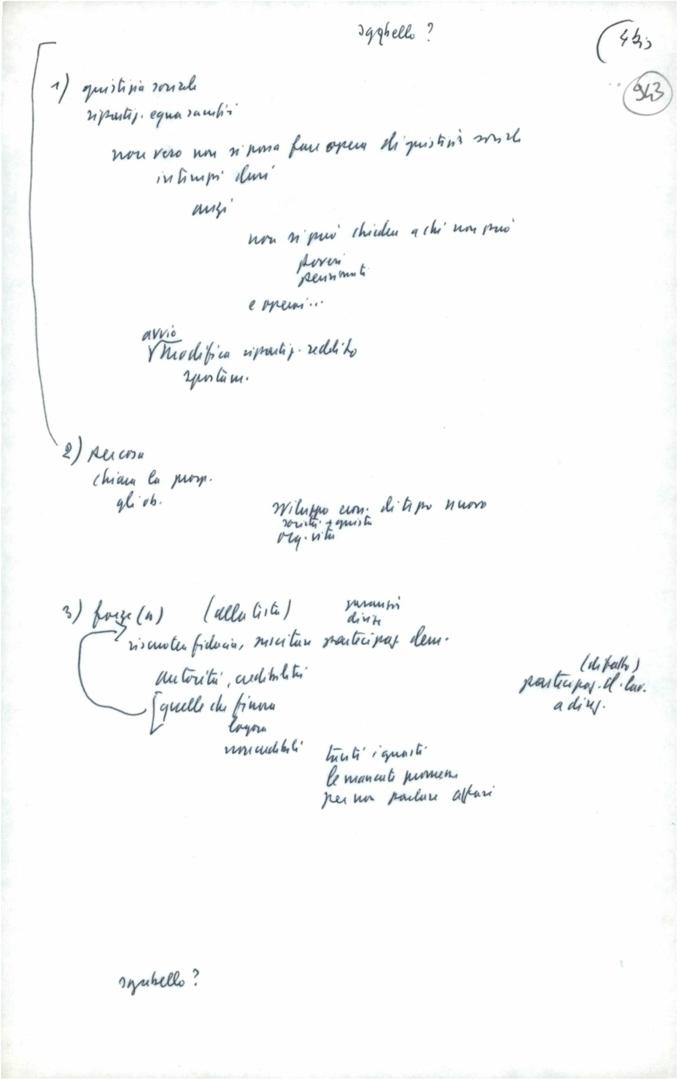 sgabello?
4bis
943
1) giustizia sociale
ripartiz. equa sacrifici
non vero non si possa fare opera di giustizia sociale
in tempi duri
anzi
non si può chiedere a chi non può
poveri
pensionati
e operai...
avvio
modifica ripartiz. reddito
spostam.
2) per cosa
chiara la prosp.
gli ob.
sviluppo econ. di tipo nuovo
società + giusta
org. vita
3) forze (a) (alla testa)
garanzie
direz
riscuotere fiducia, suscitare partecipaz dem.
autorità, credibilità
(di fatto)
partecipaz. cl. lav.
a direz.
quelle che finora
logora
non credibili
tutti i guasti
le mancate promesse
per non parlare affari
sgabello?